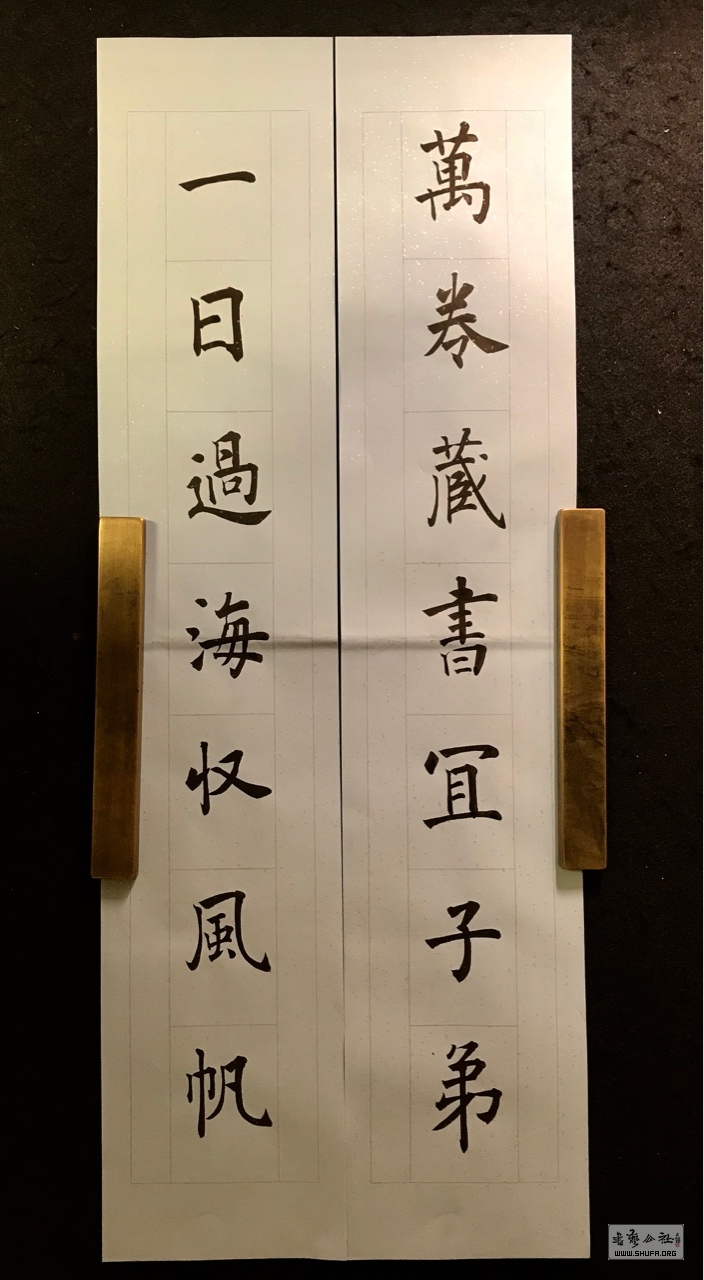 萬卷蔵書冝子弟
一日過海収風帆
書藝公社
WWW.SHUFA.ORG